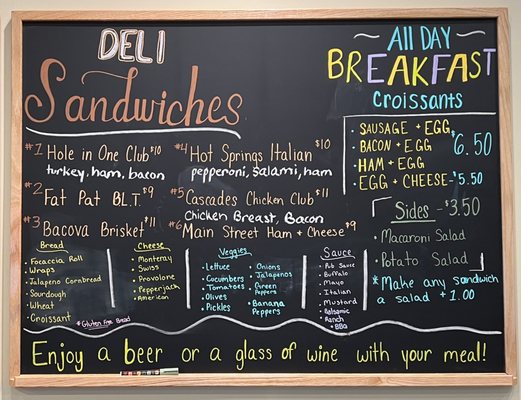 DELI
Sandwiches
#1 Hole in One Club $10
turkey, ham, bacon
#2 Fat Pat BL.T. $9
#3 Bacova Brisket $11
#4 Hot Springs Italian $10
pepperoni, Salami, ham
#5 Cascades Chicken Club $11
Chicken Breast, Bacon
#6 Main Street Ham + Cheese $9
All DAY
BREAKFAST
Croissants
• SAUSAGE + EGG
• BACON + EGG
• HAM + EGG
$6.50
• EGG + CHEESE - $5.50
Sides - $3.50
• Macaroni Salad
• Potato Salad
* Make any sandwich
a salad + 1.00
Bread
• Focaccia Roll
• Wraps
• Jalapeno Cornbread
• Sourdough
• Wheat
• Croissant
*Gluten Free Bread
Cheese
• Monteray
• Swiss
• Provolone
• Pepperjack
• American
Veggies
• Lettuce
• Cucumbers
• Tomatoes
• Olives
• Pickles
• Onions
• Jalapenos
• Green
Peppers
• Banana
Peppers
Sauce
• Pub Sauce
• Buffalo
• Mayo
• Italian
• Mustard
• Balsamic
• Ranch
• BBQ
Enjoy a beer or a glass of wine with your meal!